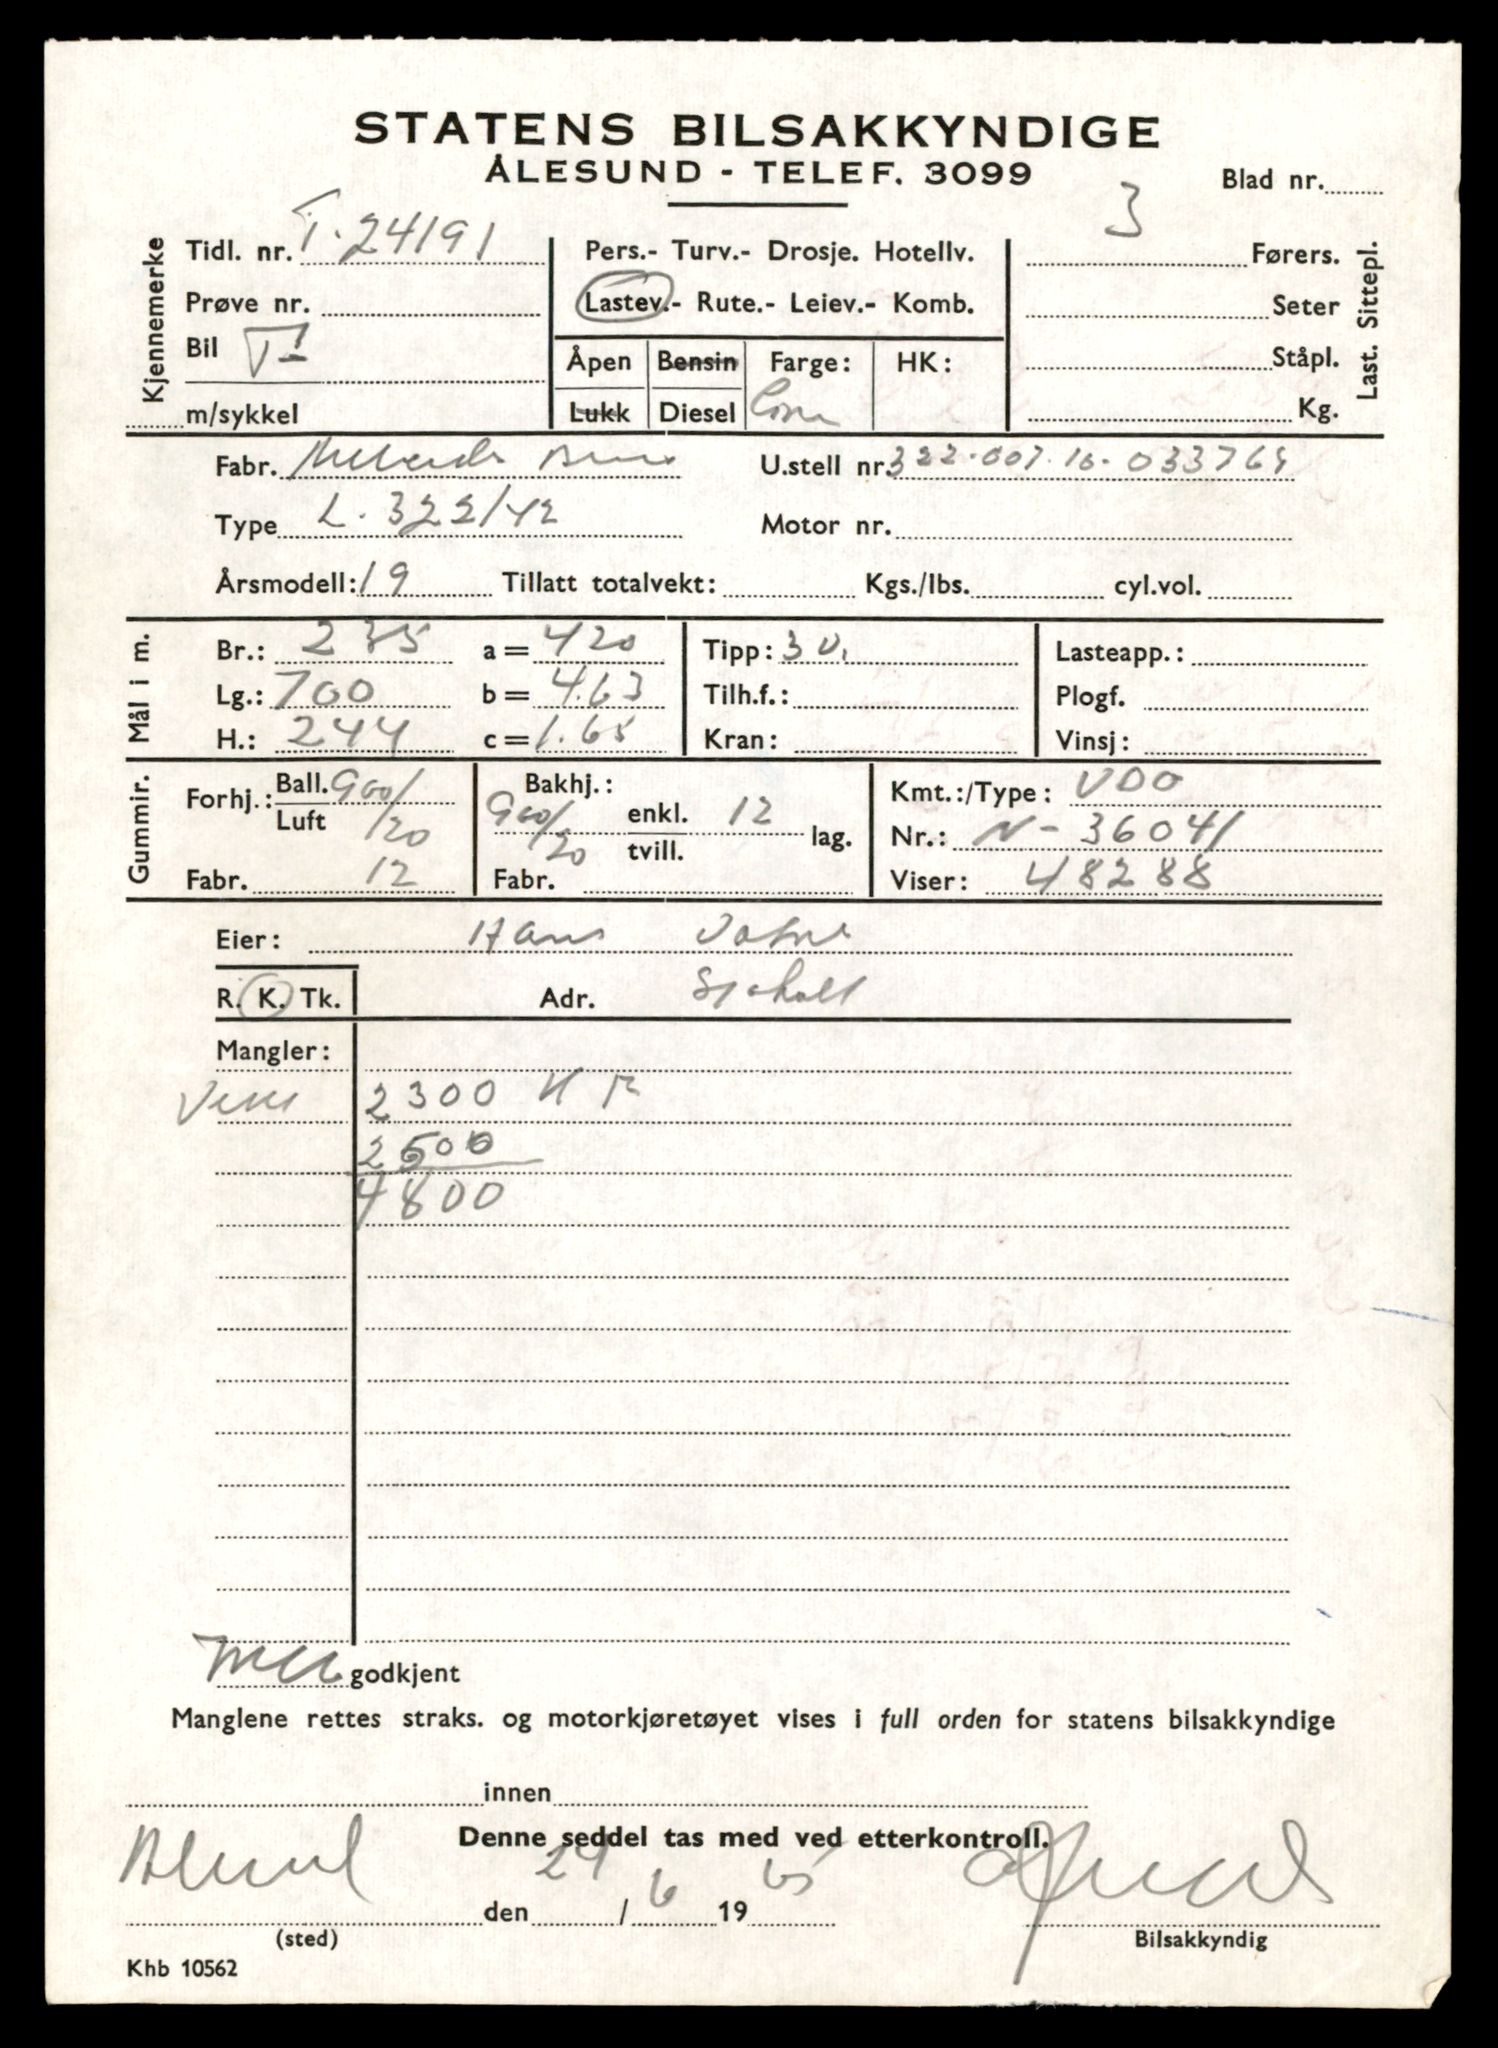 STATENS BILSAKKYNDIGE
ÅLESUND - TELEF. 3099
Blad nr.
Kjennemerke
Tidl. nr. T-24191
Prøve nr.
Bil
m/sykkel
Pers.- Turv.- Drosje. Hotellv.
Lastev.- Rute.- Leiev.- Komb.
Åpen Bensin Farge: HK:
Lukk Diesel
3 Førers.
Seter
Ståpl.
Kg.
Last. Sittepl.
Fabr. U.stell nr. 322-007-10-033769
Type L. 322/42 Motor nr.
Årsmodell: 19 Tillatt totalvekt: Kgs./lbs. cyl.vol.
Mål i m.
Br.: 235 a = 420 Tipp: 3 Lasteapp.:
Lg.: 700 b = 4.63 Tilh.f.: Plogf.
H.: 244 c = 1.65 Kran: Vinsj:
Gummir.
Forhj.: Ball. 900/20 Luft
Fabr. 12
Bakhj.: 900/20 enkl. tvill. 12 lag.
Fabr.
Kmt.:/Type: VDO
Nr.: N-36041
Viser: 48288
Eier: Hans
R. K. Tk. Adr. Sjøholt
Mangler:
2300
2500
4800
godkjent
Manglene rettes straks. og motorkjøretøyet vises i full orden for statens bilsakkyndige
innen
Denne seddel tas med ved etterkontroll.
den 24/6 1965
(sted)
Bilsakkyndig
Khb 10562